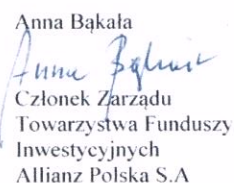 Anna Bąkała
Anna Bąkała
Członek Zarządu
Towarzystwa Funduszy
Inwestycyjnych
Allianz Polska S.A